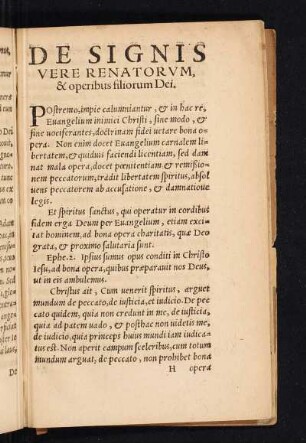 DE SIGNIS
VERE RENATORVM,
& operibus filiorum Dei.
POstremo, impie calumniantur, & in hac re,
Euangelium inimici Christi, sine modo, &
sine uociferantes, doctrinam fidei uetare bona
opera. Non enim docet Euangelium carnalem li
bertatem, & quiduis faciendi licentiam, sed dam
nat mala opera, docet pœnitentiam & remissio-
nem peccatorum, tradit libertatem spiritus, absol
uens peccatorem ab accusatione, & damnatione
legis.
Et spiritus sanctus, qui operatur in cordibus
fidem erga Deum per Euangelium, etiam exci
tat hominem, ad bona opera charitatis, quæ Deo
grata, & proximo salutaria sunt.
Ephe. 2. Ipsius sumus opus conditi in Christo
Iesu, ad bona opera, quibus præparauit nos Deus,
ut in eis ambulemus.
Christus ait, Cum uenerit spiritus, arguet
mundum de peccato, de iusticia, et iudicio. De pec
cato quidem, quia non credunt in me, de iusticia,
quia ad patem uado, & posthac non uidetis me,
de iudicio, quia princeps huius mundi iam iudica-
tus est. Non aperit campum sceleribus, cum totum
mundum arguat, de peccato, non prohibet bona
H opera